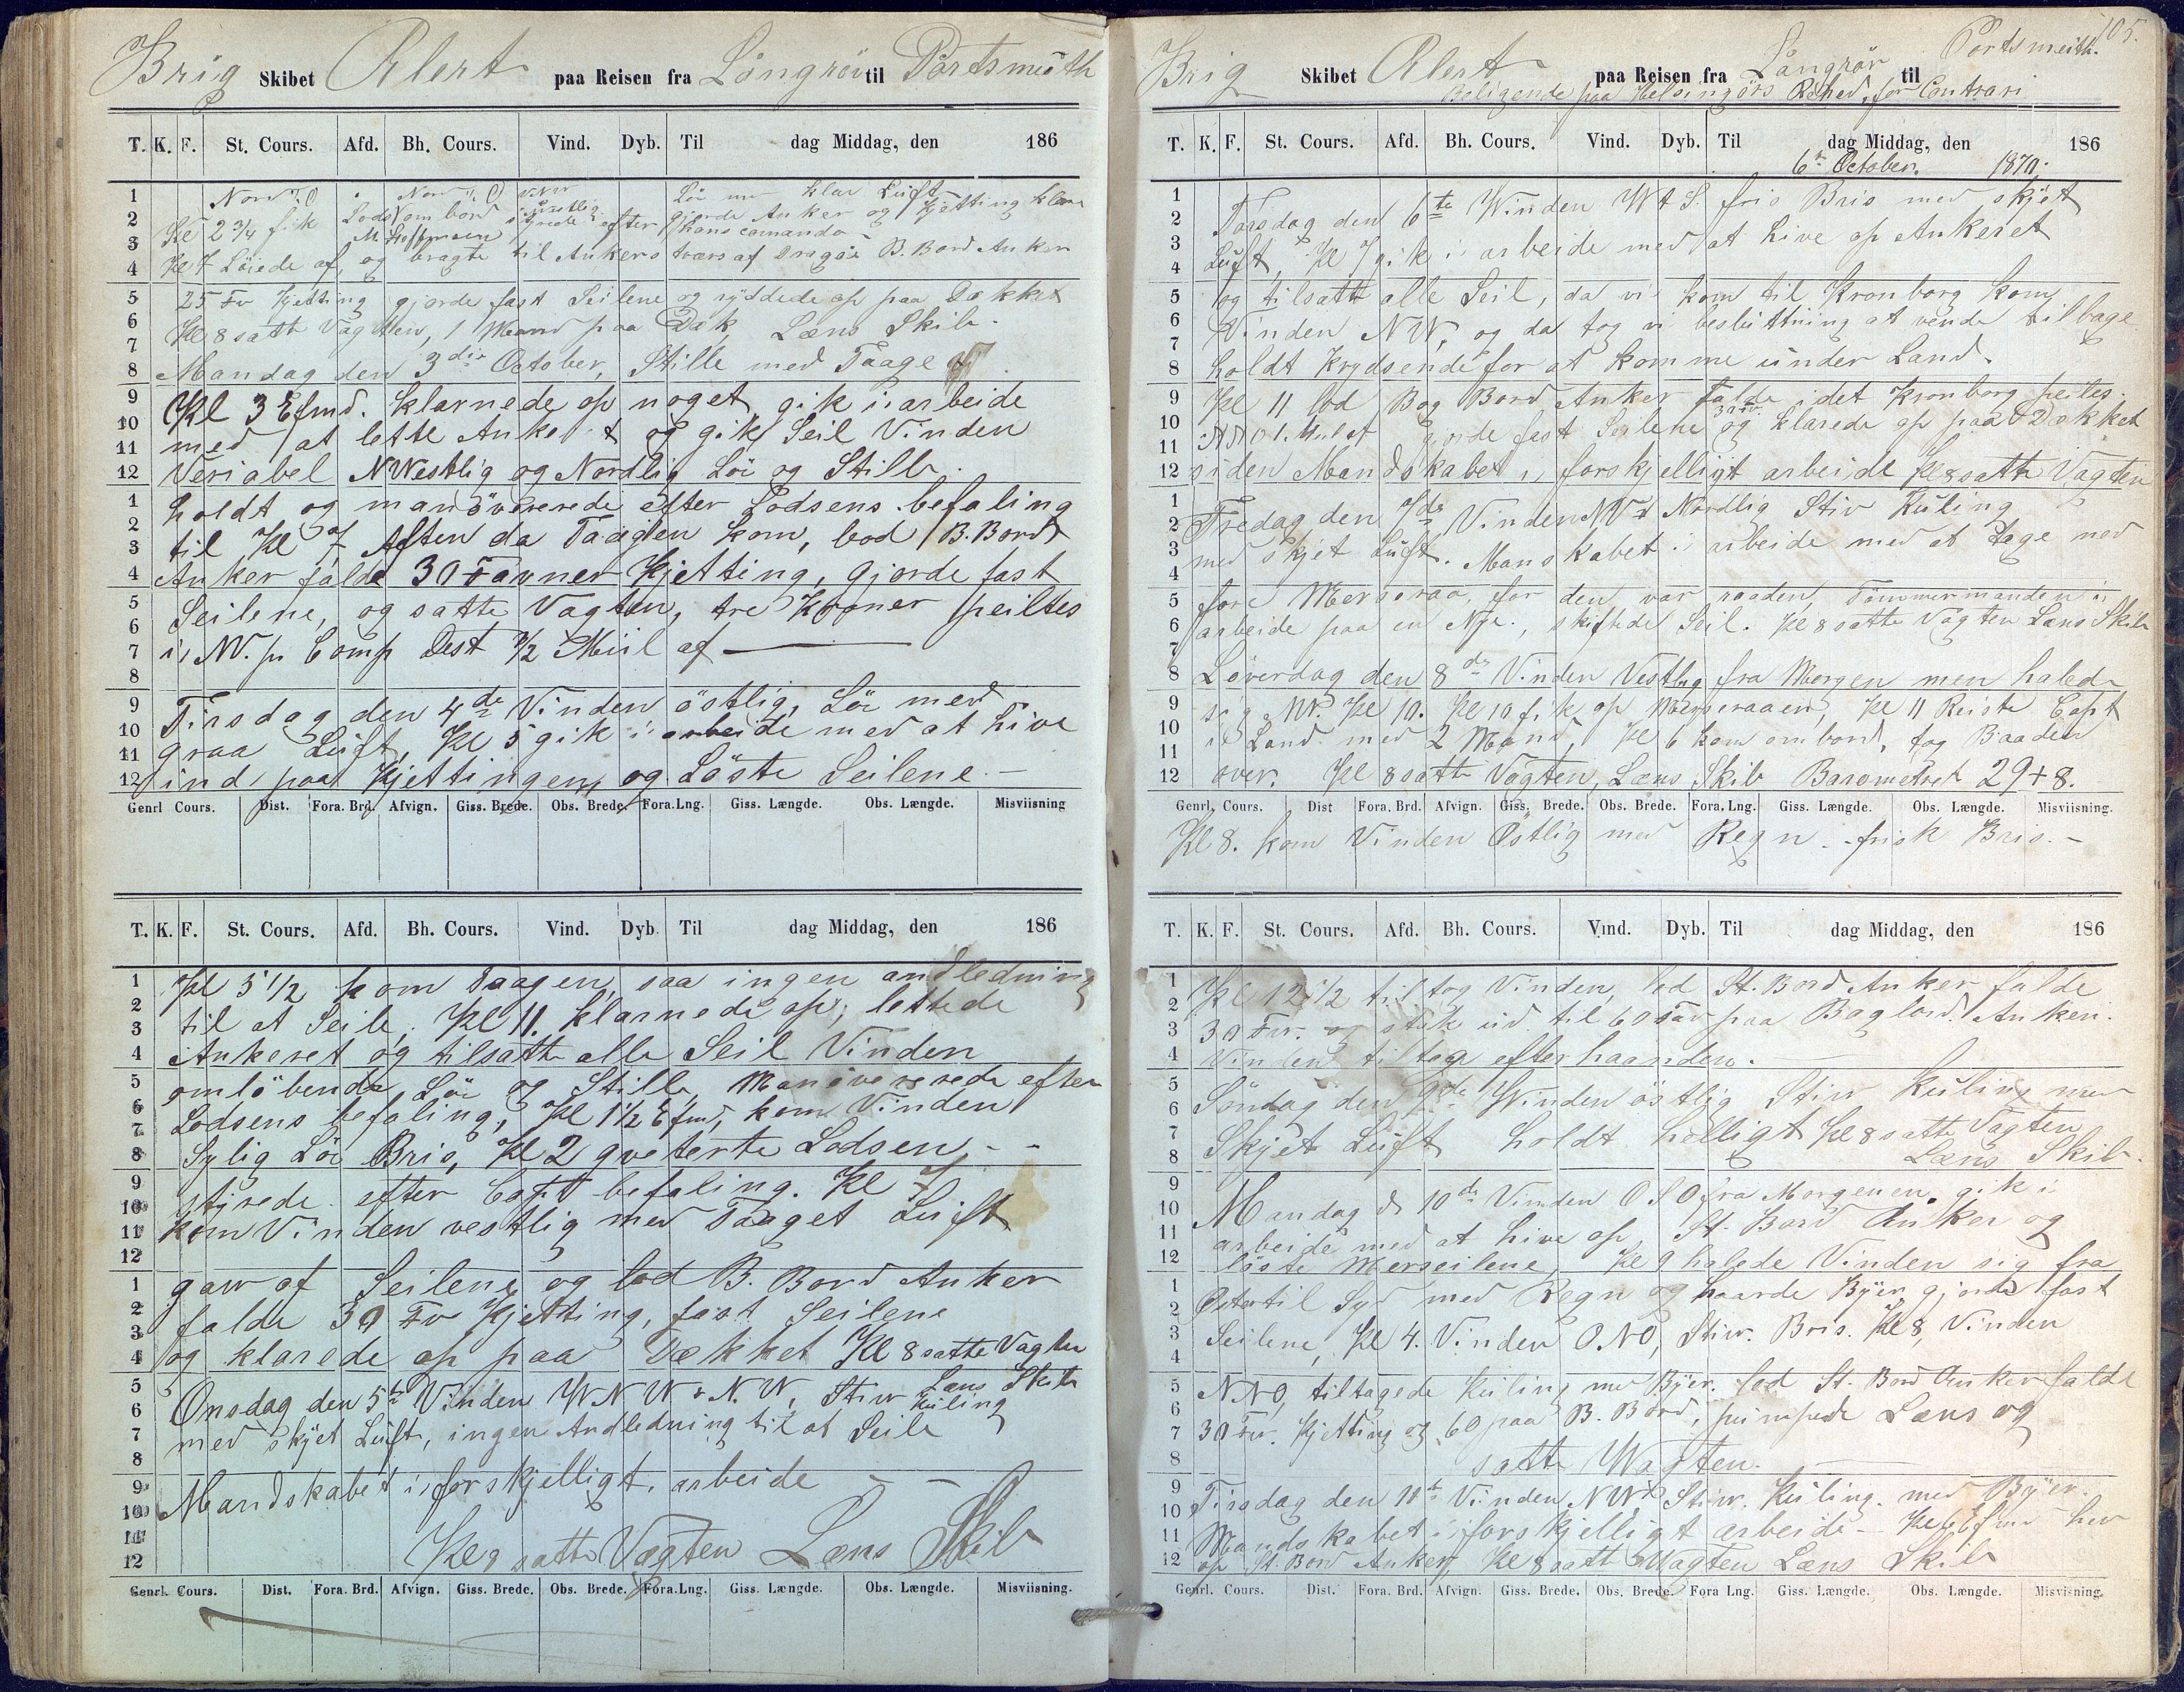 Brig Skibet Alert paa Reisen fra Löngrör til Portsmuth
T. K. F. St. Cours. Afd. Bh. Cours. Vind. Dyb. Til dag Middag, den 186
Nord t. O Nord t. O Lör klar Luft
Kl 2 3/4 fik Lods ombord gjorde Anker og Kjetting klar
styrede efter hans comando
Kl 7 Löiede af, og bragte til Ankers tværs af Dragöe B. Bord Anker
25 Fv Kjetting gjorde fast Seilene og ryddede op paa Dækket
Kl 8 satte Vagten, 1 Mand paa Dæk, Læns Skib.
Mandag den 3die October, Stille med Taage
Kl 3 Efmd. klarnede op noget gik i arbeide
med at lette Anker t og gik Seil Vinden
Veriabel NWestlig og Nordlig Lör og Stille.
holdt og manöverede efter Lodsens befaling
til Kl 7 Aften da Taagen kom, lod B. Bord
Anker falde 30 Favner Kjetting, gjorde fast
Seilene, og satte Vagten, tre Kroner peiltes
i NW. pr Comp Dest 1/2 Miil af
Tirsdag den 4de Vinden östlig, Lör med
graa Luft, Kl 5 gik i arbeide med at hive
ind paa Kjettingen og Löste Seilene. —
Genrl Cours. Dist. Fora. Brd. Afvign. Giss. Brede. Obs. Brede. Fora.Lng. Giss. Længde. Obs. Længde. Misviisning
T. K. F. St. Cours. Afd. Bh. Cours. Vind. Dyb. Til dag Middag, den 186
Kl 5 1/2 kom Taagen, saa ingen andledning
til at Seile, Kl 11. klarnede op, lettede
Ankeret og tilsatte alle Seil Vinden
omlöbende Lör og Stille, Manöverede efter
Lodsens befaling, Kl 1 1/2 Efmd, kom Vinden
Sylig Lör Bris, Kl 2 qveterte Lodsen, - -
styrede efter Capt befaling. Kl 7
kom Vinden vestlig med Taaget Luft
gaw af Seilene og lod B. Bord Anker
falde 30 Fv Kjetting, fast Seilene
og klarede op paa Dækket Kl 8 satte Vagten
Læns Skib
Onsdag den 5te Vinden WNW & N.W, Stiw Kuling
med skyet Luft, ingen Andledning til at Seile
Mandskabet i forskjelligt. arbeide — —
Kl 8 satte Vagten Læns Skib
Genrl. Cours. Dist. Fora. Brd. Afvign. Giss. Brede. Obs. Brede. Fora.Lng. Giss. Længde. Obs. Længde. Misviisning.
105.
Brig Skibet Alert paa Reisen fra Langrör til Portsmuith.
Beligende paa Helsingörs Rehed, for Contrari
T. K. F. St. Cours. Afd. Bh. Cours. Vind. Dyb. Til dag Middag, den 186
6te October. 1870.
Torsdag den 6te Winden W t S. fris Bris med skyet
Luft, Kl 7 gik i arbeide med at hive op Ankeret
og tilsatte alle Seil, da vi kom til Kronborg kom
Vinden NW, og da tog vi besluttning at vende tilbage
holdt krydsende for at komme under Land.
Kl 11 lod Bag Bord Anker falde, i det Kronborg peiles.
30 Fv.
NNO 1. gjorde fast Seilene og klarede op paa Dækket
siden Mandskabet i forskjelligt arbeide Kl 8 satte Vagten
Fredag den 7de Vinden NW t Nordlig Stiv Kuling
med skyet Luft. Manskabet i arbeide med at tage ned
fore Merseraa, for den var raaden, Tömmermanden i
arbeide paa en Nye., skiftede Seil. Kl 8 satte Vagten Læns Skib
Löverdag den 8de Vinden Vestlig fra Morgen men halede
sig NW. Kl 10. Kl 10 fik op Merseraaen, Kl 11 Reiste Capt
i Land med 2 Mand, Kl 6 kom ombord, tog Baaden
over. Kl 8 satte Vagten, Læns Skib Barometret 29+8.
Genrl. Cours. Dist Fora. Brd. Afvign. Giss. Brede. Obs. Brede. Fora.Lng. Giss. Længde. Obs. Længde. Misviisning.
Kl 8. kom Vinden Östlig med Regn. frisk Bris. —
T. K. F. St. Cours. Afd. Bh. Cours. Vind. Dyb. Til dag Middag, den 186
Kl 12 1/2 tiltog Vinden, lod St. Bord Anker falde
30 Fv. og stak ud til 60 Fav paa Bagbord. Anker.
Vinden tiltog efterhaanden.
Söndag den 9de Winden östlig Stiw Kuling med
Skyet Luft holdt helligt Kl 8 satte Vagten
Læns Skib.
Mandag d 10de Vinden OSO fra Morgenen. gik i
arbeide med at hive op St. Bord Anker og
löste Merseilene, Kl 9 halede Vinden sig fra
Öster til Syd med Regn og haarde Byer, gjorde fast
Seilene, Kl 4. Vinden O.NO, Stiw. Bris. Kl 8, Vinden
NNO, tiltagede Kuling med Byer. lod St. Bord Anker falde
30 Fv. Kjetting og 60 paa B. Bord, pumpede Læns og
satte Wagten.
Tirsdag den 11te Vinden NW Stiw. Kuling. med Byer.
Mandskabet i forskjelligt arbeide — Kl 6 Efmd hev
op St. Bord Anker, Kl 8 satte Wagten Læns Skib
Genrl. Cours. Dist. Fora. Brd. Afvign. Giss. Brede. Obs. Brede. Fora Lng. Giss. Længde. Obs. Længde. Misvisning.